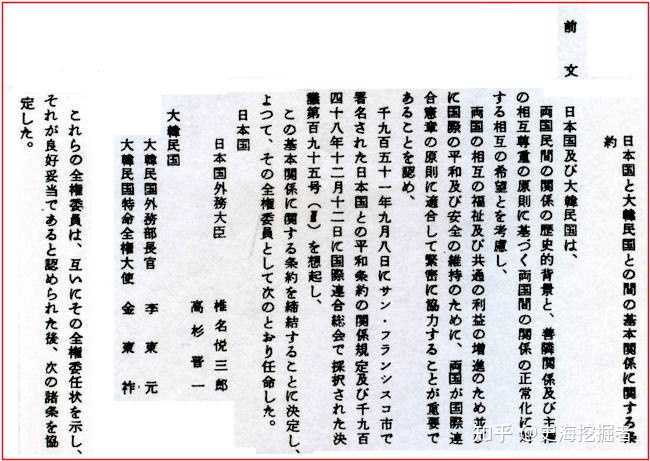 前文
日本国と大韓民国との間の基本関係に関する条
約
日本国及び大韓民国は、
両国民間の関係の歴史的背景と、善隣関係及び主権
の相互尊重の原則に基づく両国間の関係の正常化に対
する相互の希望とを考慮し、
両国の相互の福祉及び共通の利益の増進のため並び
に国際の平和及び安全の維持のために、両国が国際連
合憲章の原則に適合して緊密に協力することが重要で
あることを認め、
千九百五十一年九月八日にサン・フランシスコ市で
署名された日本国との平和条約の関係規定及び千九百
四十八年十二月十二日に国際連合総会で採択された決
議第百九十五号(Ⅲ)を想起し、
この基本関係に関する条約を締結することに決定し、
よつて、その全権委員として次のとおり任命した。
日本国
日本国外務大臣 椎名悦三郎
高杉晋一
大韓民国
大韓民国外務部長官 李東元
大韓民国特命全権大使 金東祚
これらの全権委員は、互いにその全権委任状を示し、
それが良好妥当であると認められた後、次の諸条を協
定した。
知乎 @東海挖掘者